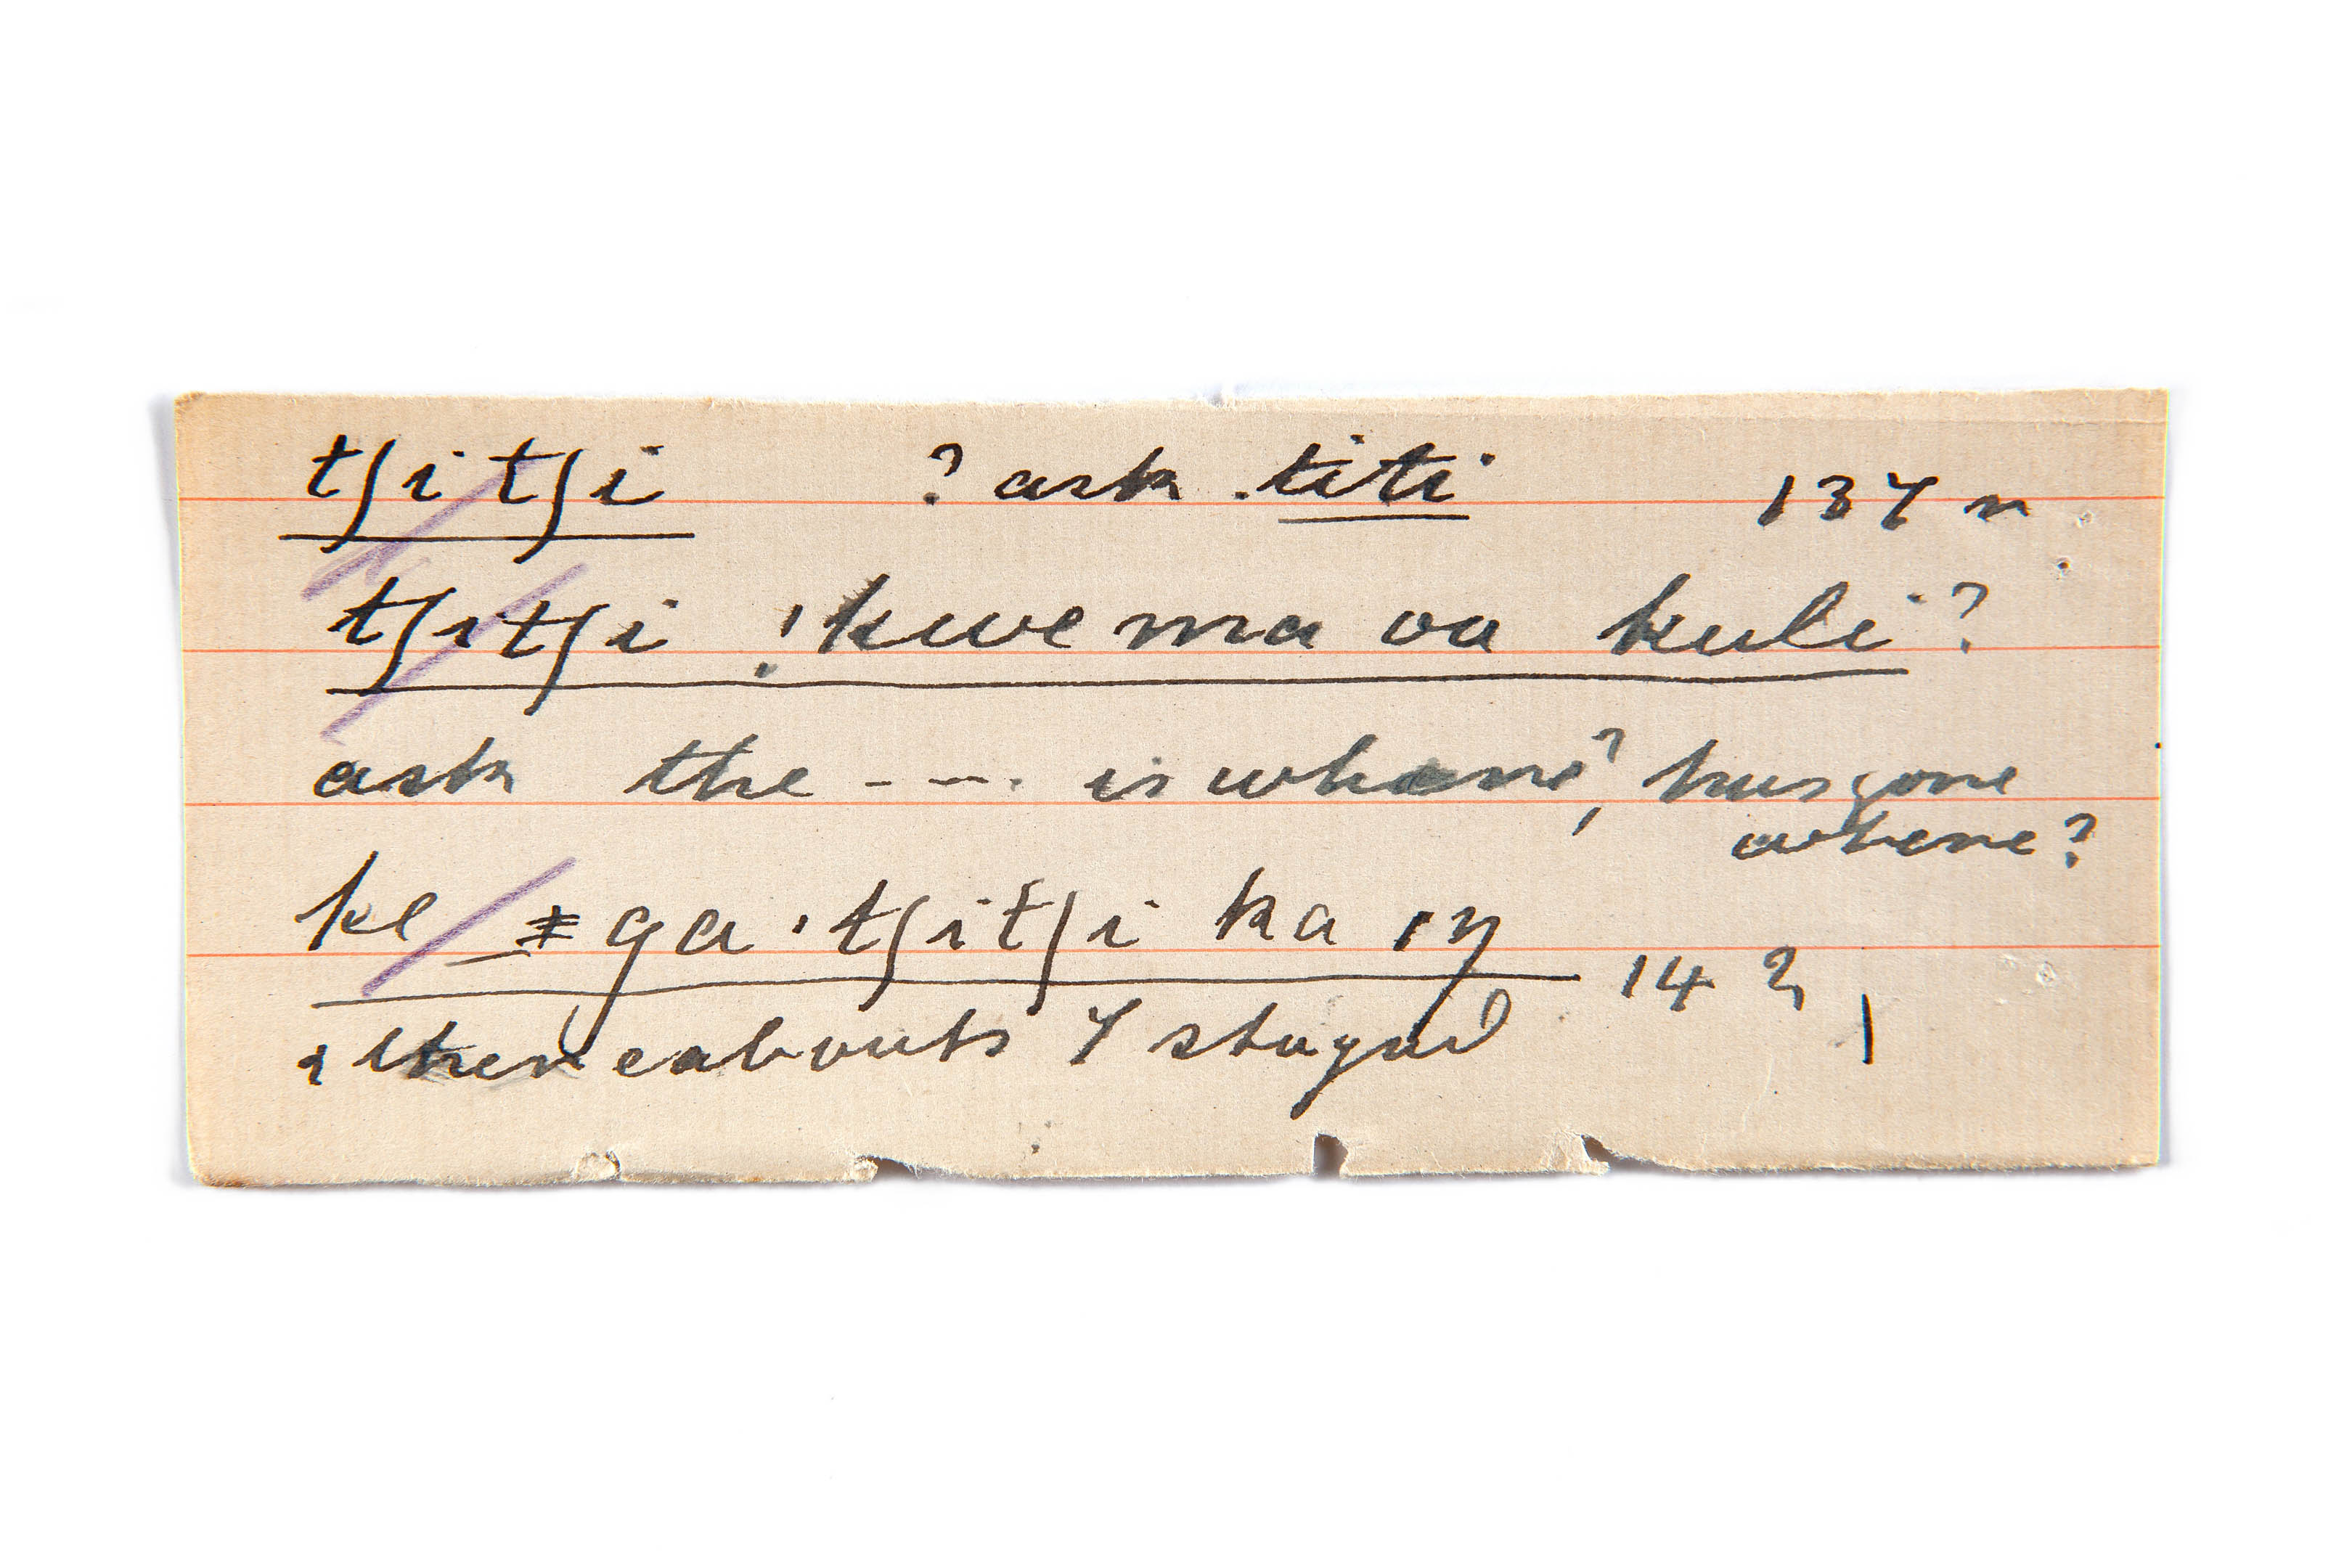 tʃitʃi ? ask titi 137 n
tʃitʃi !kwe ma oa kuli?
ask the ---. is where?, has gone
where?
ke ǂga·tʃitʃi ka ıŋ 14
thereabouts I stayed